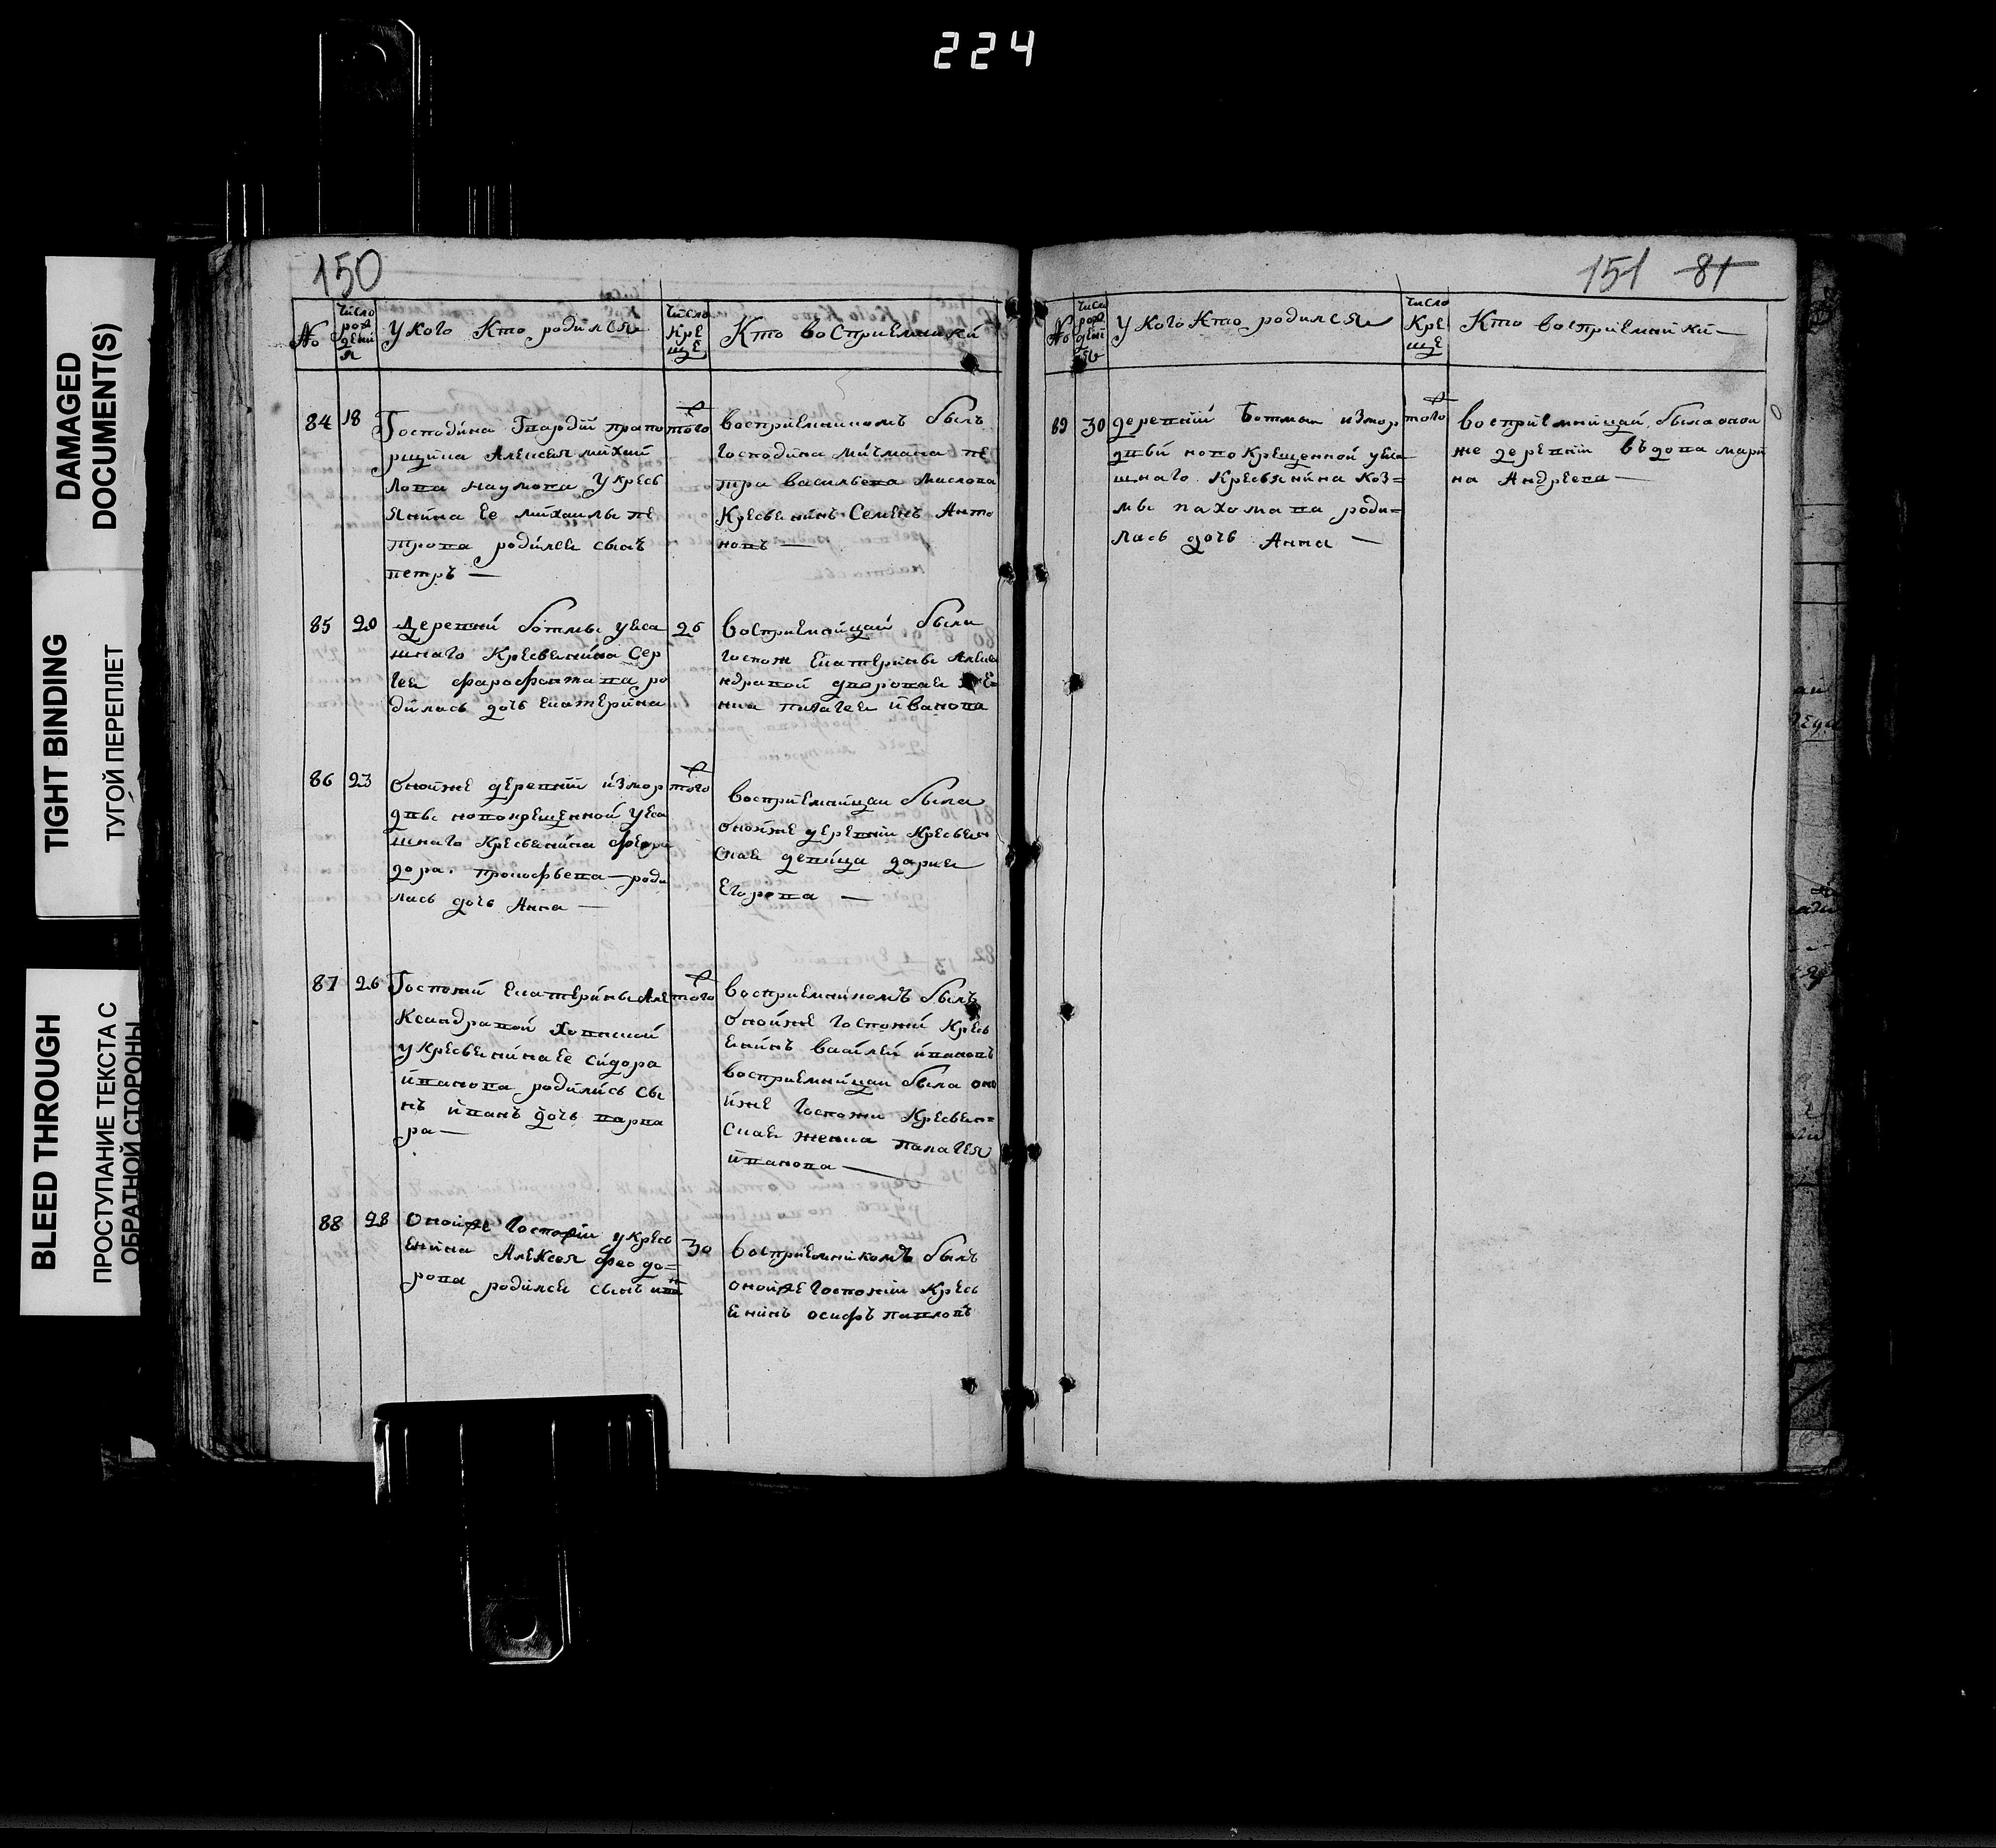 224
DAMAGED
DOCUMENT(S)
TIGHT BINDING
ТУГОЙ ПЕРЕПЛЕТ
BLEED THROUGH
ПРОСТУПАНИЕ ТЕКСТА С
ОБРАТНОЙ СТОРОНЫ
150
№
число рождения
У кого кто родился
число креще
Кто восприемники
84 18 Господина Гвардіи прапо
рщика Алексея михаи
лова наумова у кресь
янина ее михаилы пе
трова родилсе сынъ
петръ —
того
восприемникомъ былъ
господина мичмана пе
тра васильева маслова
кресьенинъ Семенъ Анто
новъ —
85 20 Деревни ботмы уеса
шнаго кресьенина Сер
гея фарафонтова ро
дилась дочь екатерина
26
восприемницай были
госпож екатерины Алекса
ндравой
пилагея иванова
86 23 оной же деревни измор
двы новокрещенной уеса
шнаго кресьенина феор
дора прокофьева — роди
лась дочь Анна —
того
восприемницаи была
оной же деревни кресьен
скае девица дарие
Егорова —
87 26 Госпожи екатерины Але
ксандравой
у кресьенина ее сидора
иванова родились сы
нъ иванъ дочь варва
ра —
того
восприемникомъ былъ
оной же госпожи кресь
енинъ василей ивановъ
восприемницаи была оно
йже госпожи кресьен=
скае женка палагея
иванова —
88 28 оной же госпожи у кресь
енина Алексея феодо=
рова родилсе сынъ
30
восприемникомъ былъ
оной же госпожи кресь
енинъ осифъ павловъ
151 81
№
число рождения
У кого кто родился
число креще
Кто восприемники —
89 30 деревни Ботмы измор
двы новокрещенной уеса
шнаго кресьянина коз=
мы пахомава роди=
лась дочь Анна —
того
восприемницай была оной
же деревни въдова мари
на Андреева —